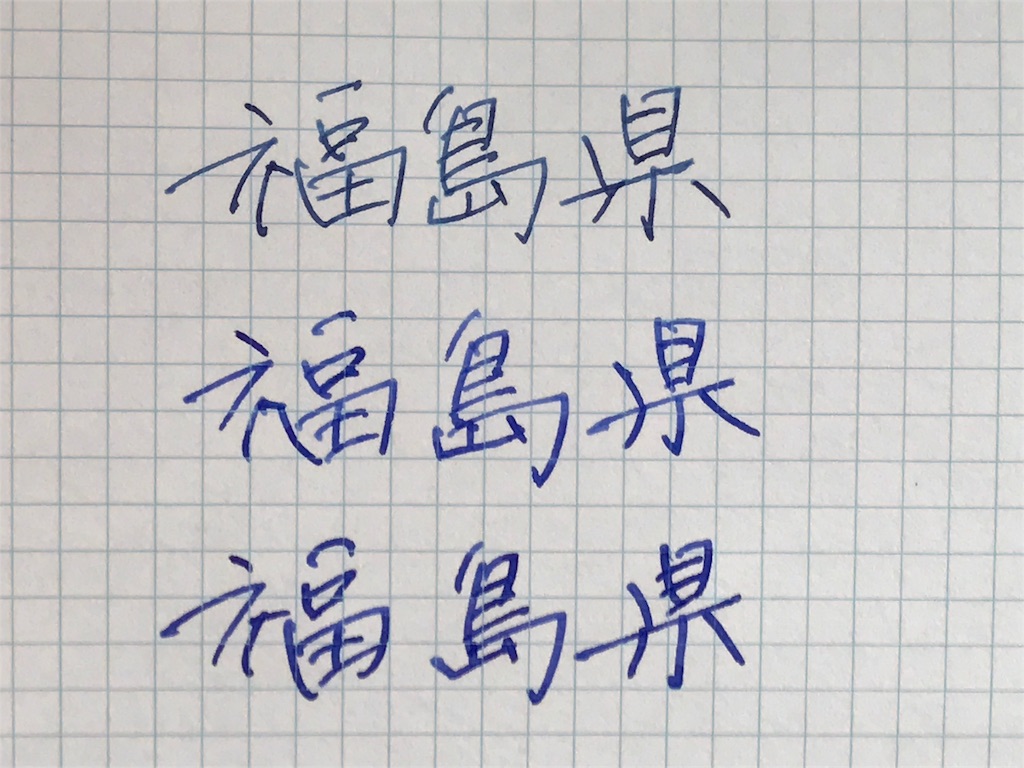 福島県
福島県
福島県